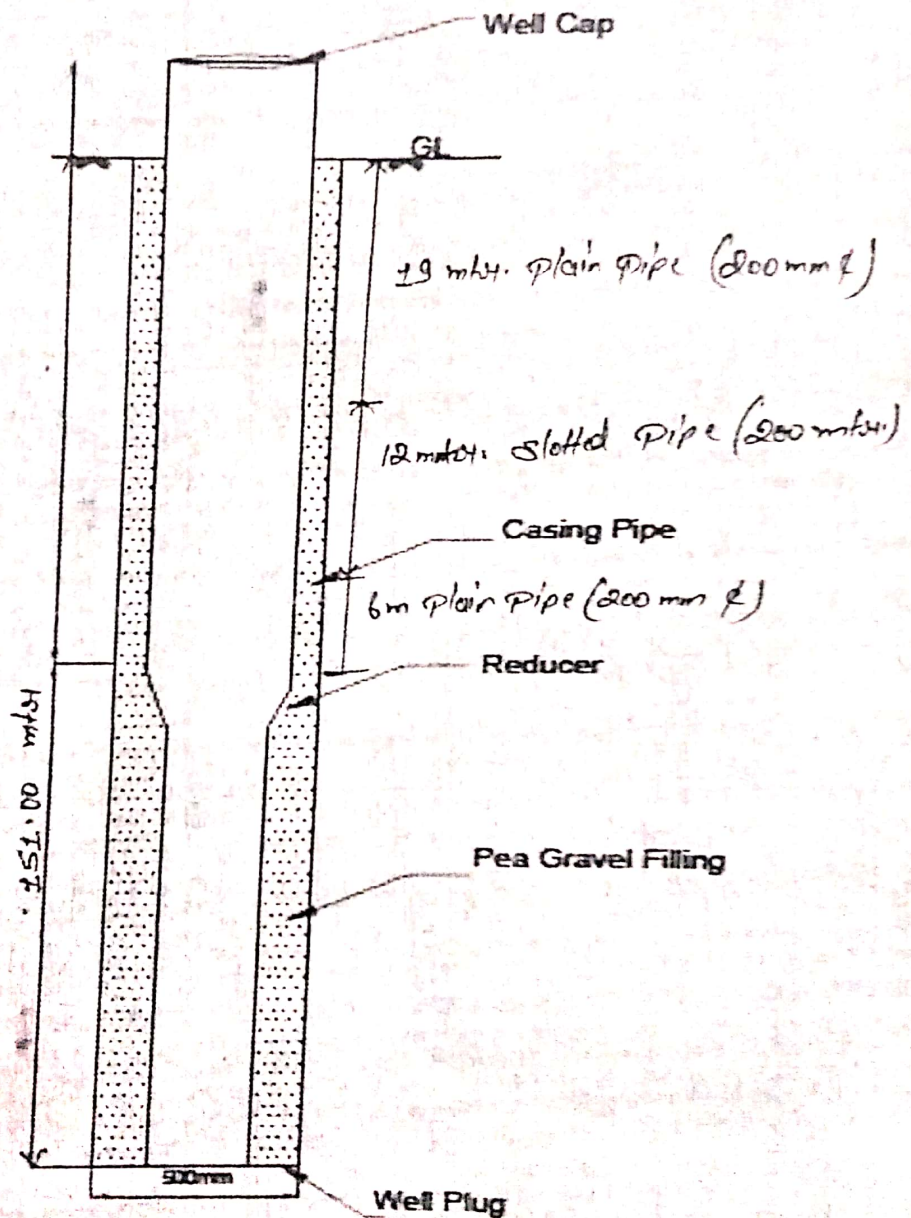 Well Cap
GL
19 mtr. plain pipe (200mm ¢)
12 mtr. slotted pipe (200 mtr.)
Casing Pipe
6m plain pipe (200 mm ¢)
Reducer
151.00 mtr
Pea Gravel Filling
500mm
Well Plug